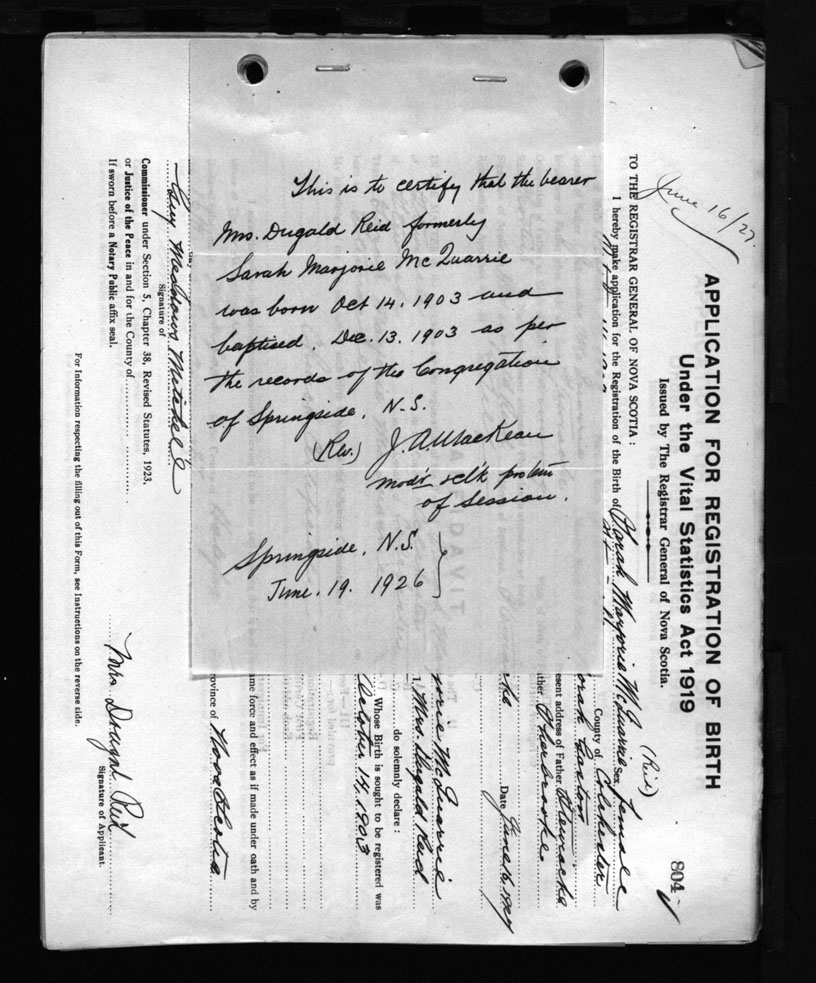 This is to certify that the bearer
Mrs. Dugald Reid formerly
Sarah Marjorie McQuarrie
was born Oct 14. 1903 and
baptised. Dec. 13. 1903 as per
the records of the Congregation
of Springside. N.S.
(Rev.) J. A. MacKean
mod'r & cl'k protem
of Session.
Springside. N.S.
June. 19. 1926
June 16/27.
804
APPLICATION FOR REGISTRATION OF BIRTH
Under the Vital Statistics Act 1919
Issued by The Registrar General of Nova Scotia.
TO THE REGISTRAR GENERAL OF NOVA SCOTIA:
I hereby make application for the Registration of the Birth of Sarah Marjorie McQuarrie (Reid) Sex female
County of Colchester
esent address of Father Stewiacke
ther Sherbrooke
Date June 16, 1927
orie McQuarrie
1, Mrs Dugald Reid
do solemnly declare:
Whose Birth is sought to be registered was
October 14, 1903
ame force and effect as if made under oath and by
rovince of Nova Scotia
Guy Meadows Mitchell
Signature of
Commissioner under Section 5, Chapter 38, Revised Statutes, 1923,
or Justice of the Peace in and for the County of
If sworn before a Notary Public affix seal.
Mrs Dougal Reid
Signature of Applicant.
For Information respecting the filling out of this Form, see Instructions on the reverse side.